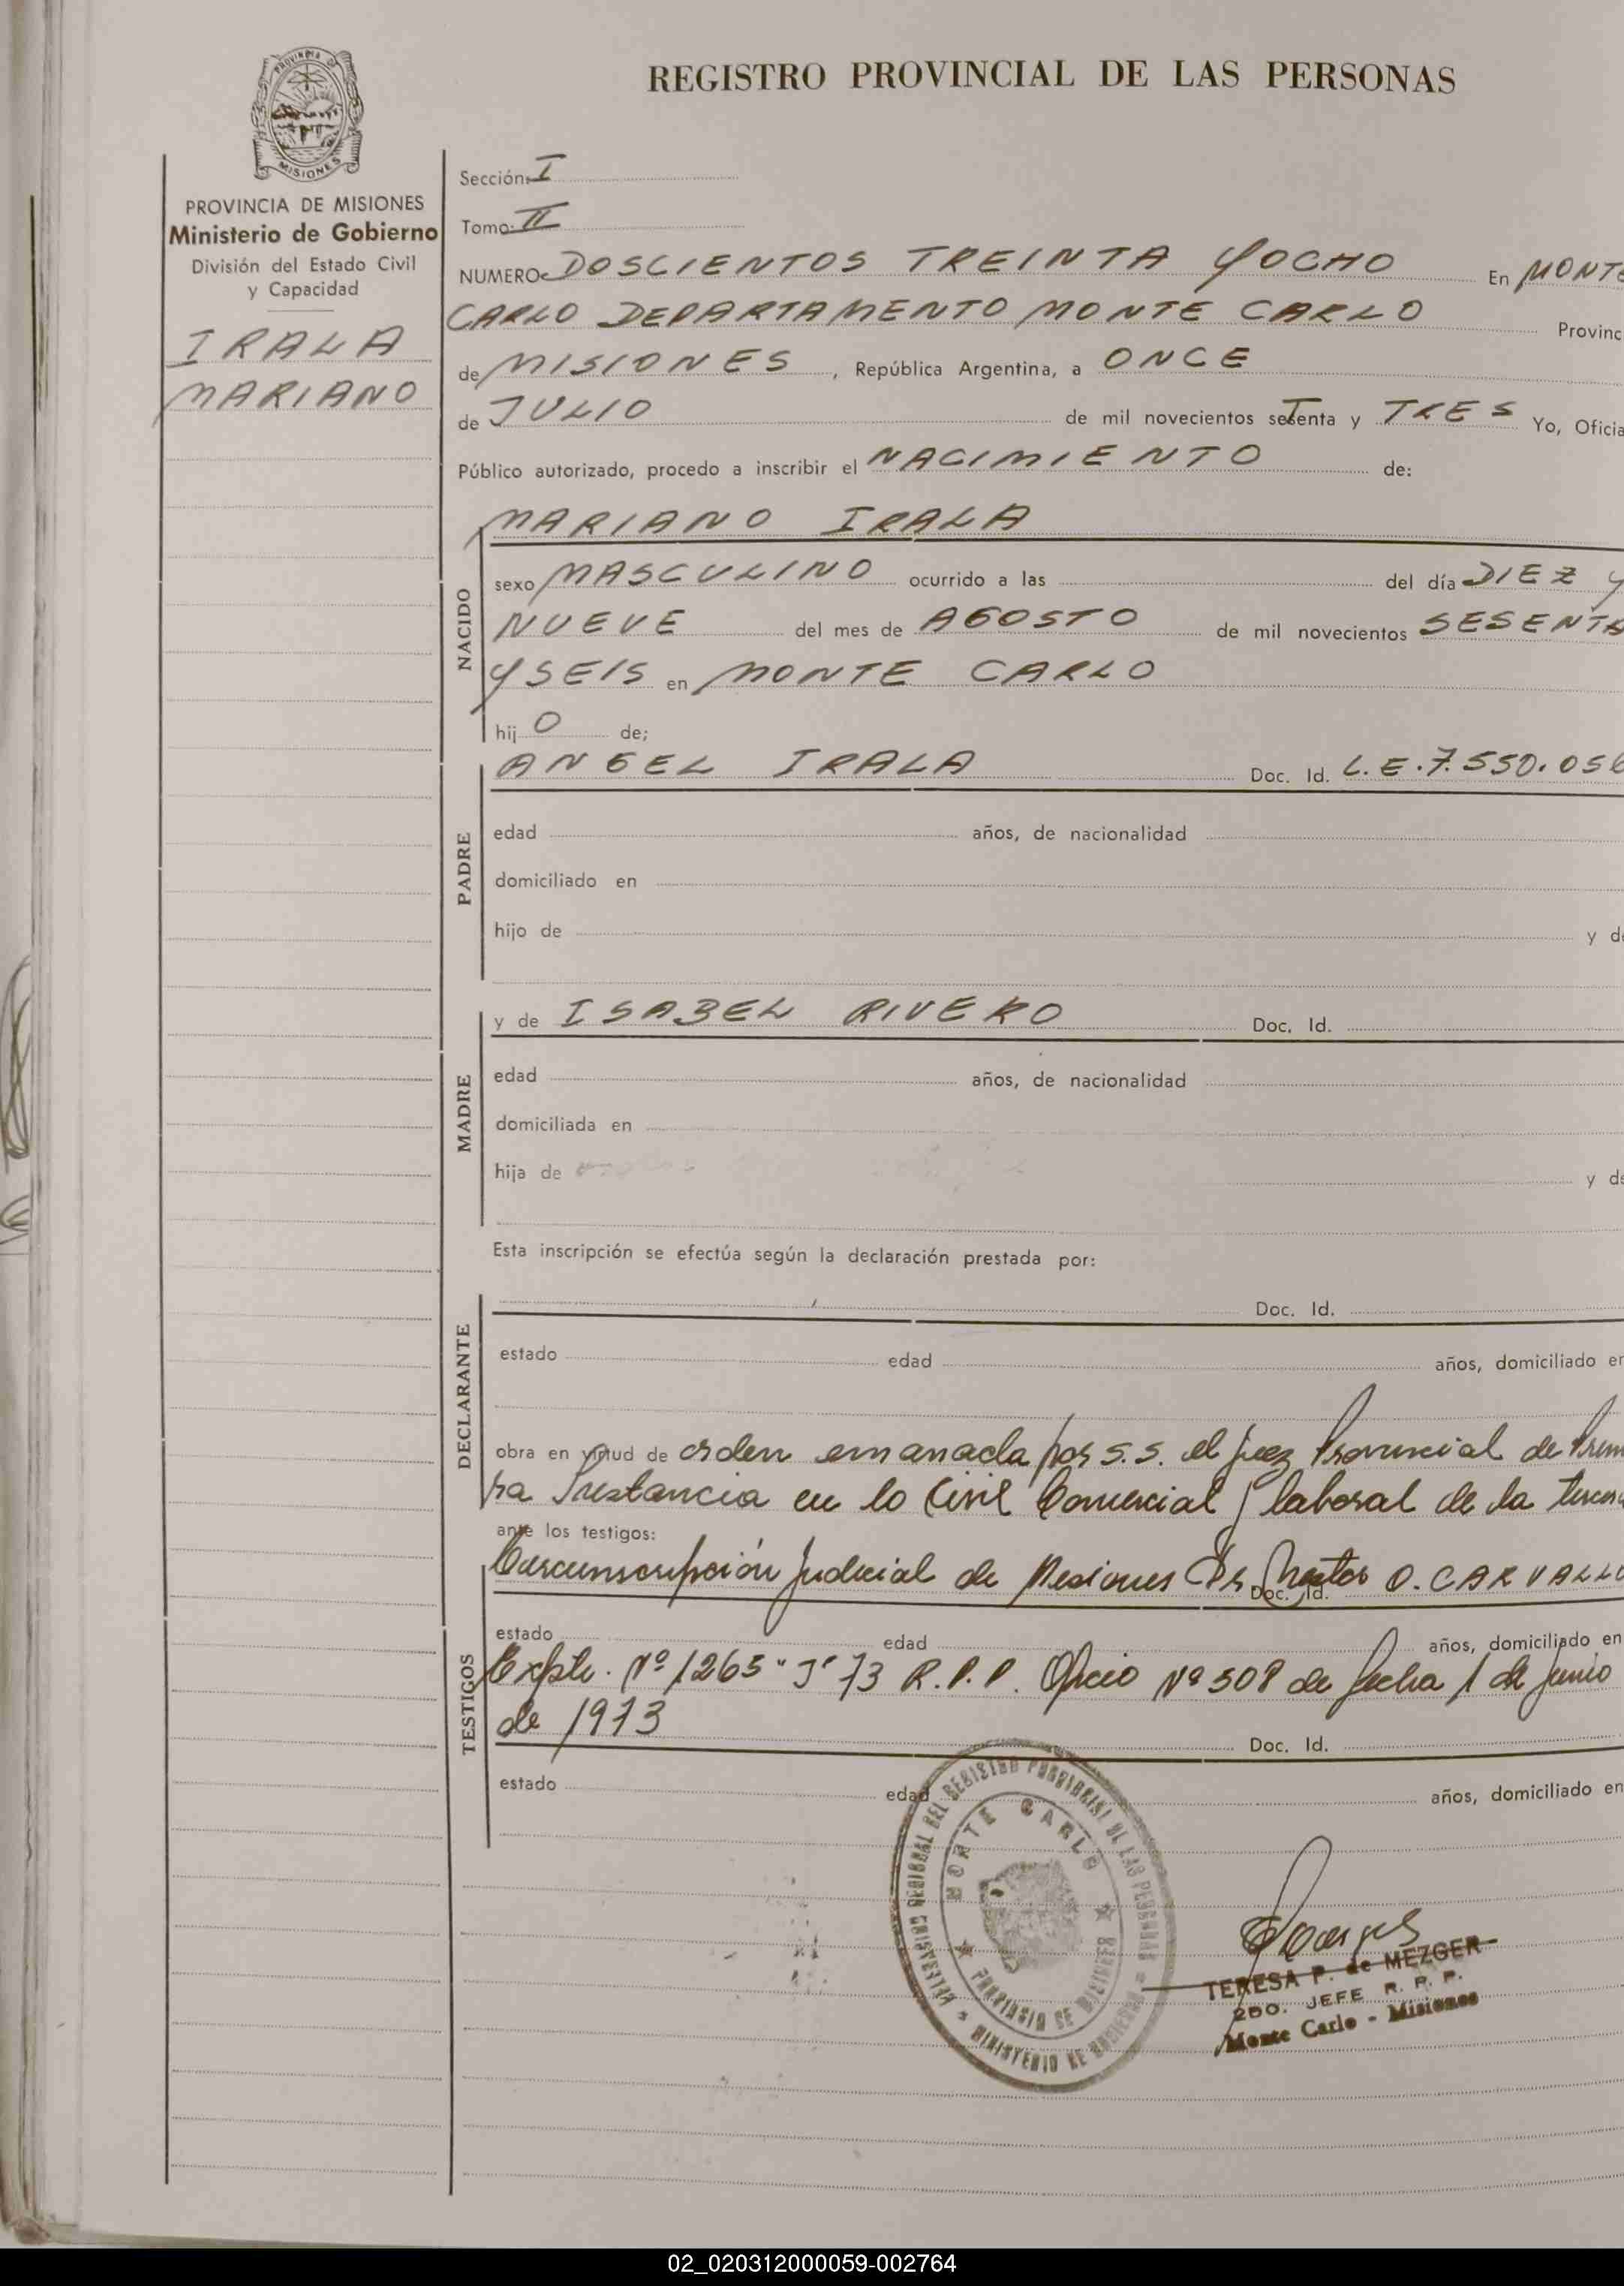 REGISTRO PROVINCIAL DE LAS PERSONAS
PROVINCIA DE
MISIONES
PROVINCIA DE MISIONES
Ministerio de Gobierno
División del Estado Civil
y Capacidad
IRALA
MARIANO
Sección: I
Tomo: II
NUMERO DOSCIENTOS TREINTA Y OCHO En MONTE
CARLO DEPARTAMENTO MONTE CARLO Provinc
de MISIONES, República Argentina, a ONCE
de JULIO de mil novecientos setenta y TRES Yo, Oficia
Público autorizado, procedo a inscribir el NACIMIENTO de:
NACIDO
MARIANO IRALA
sexo MASCULINO ocurrido a las del día DIEZ y
NUEVE del mes de AGOSTO de mil novecientos SESENTA
Y SEIS en MONTE CARLO
hij O de;
PADRE
ANGEL IRALA Doc. Id. L.E. 7.550.056
edad años, de nacionalidad
domiciliado en
hijo de y de
MADRE
y de ISABEL RIVERO Doc. Id.
edad años, de nacionalidad
domiciliada en
hija de y de
Esta inscripción se efectúa según la declaración prestada por:
DECLARANTE
Doc. Id.
estado edad años, domiciliado en
obra en virtud de orden emanada por S.S. el Juez Provincial de Prime
ra Instancia en lo Civil Comercial y laboral de la tercera
ante los testigos:
Circunscripción Judicial de Misiones Dr. Nestor O. CARVALLO
Doc. Id.
TESTIGOS
estado edad años, domiciliado en
Expte. Nº 1265 "I" 73 R.P.P. Oficio Nº 508 de fecha 1 de Junio
de 1973
Doc. Id.
estado edad años, domiciliado en
DELEGACION REGIONAL DEL REGISTRO PROVINCIAL DE LAS PERSONAS
MONTE CARLO
PROVINCIA DE MISIONES
MINISTERIO DE GOBIERNO
TERESA P. de MEZGER
2DO. JEFE R. P. P.
Monte Carlo - Misiones
02_020312000059-002764